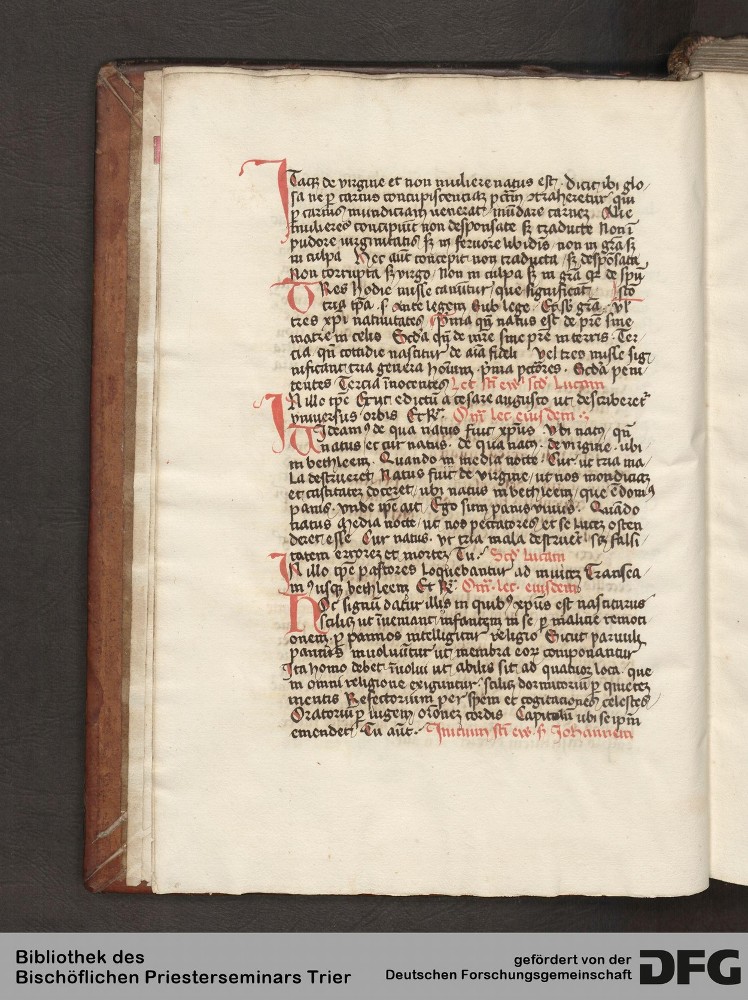 Itaq de virgine et non muliere natus est . dicit ibi glo
sa ne p carnis concupiscenciaz pctm qui
p carnis mundiciam venerat mūdare carnez Alie
mulieres concipiūt non desponsate sz traducte Non ī
pudore virginitatis sz in fervore libidis non in gra sz
in culpa Hec aūt concepit non traducta sz despōsata
Non corrupta sz virgo Non in culpa sz in gra qr de spū
TRes hodie misse canūtur que significāt sc̄o
tria tpa . s. Ante legem Sub lege . Et sb gra . vl
tres xpi nativitates Prima qn natus est de pre sine
matre in celis Scda qn de mre sine pre in terris . Ter
cia qn cottidie nascitur de aīa fideli vel tres misse sig
nificant tria genera hoīum . p̄ma pctōres . Scda peni
tentes Tercia īnocentes Lec sti ew scd Lucam
IN illo tpe Exiit edictū a cesare augusto ut describeret
universus orbis Et R Om̄ lec eiusdem
Videamus de qua natus fuit xpus . vbi natus qn
natus et cur natus . de qua natus . de virgine . ubi
in bethleem . Quando in media nocte . Cur . ut tria ma
la destrueret Natus fuit de virgine ut nos mondiciaz
et castitatez doceret . ubi natus in bethleem , que ē domus
panis . vnde ipe ait Ego sum panis vivus . Quādo
natus Media nocte . ut nos peccatores et se lucez osten
deret esse Cur natus . vt tria mala destruet sz falsi
tatem errorez et mortez Tu . Scd Lucam
IN illo tpe pastores loquebantur ad invicez Transea
mus usq bethleem Et R . Om̄ . lec . eiusdem
Hoc signū datur illis in quibus xpus est nasciturus
scilicz ut īveniant infantem in se p malicie remoti
onem . p pannos intelligitur religio Sicut parvuli
pannis involvūtur ut membra eor componantur
Ita homo debet īvolvi ut abilis sit ad quatuor loca . que
in omni religione exiguntur . scilicz dormitoriū p quietez
mentis Refectorium per spem et cogitaciones celestes
Oratoriū p iugem oronez cordis Capitolū ubi se ipm
emendet Tu aūt . Inicium sti ew s Johannem
Bibliothek des
Bischöflichen Priesterseminars Trier
gefördert von der
Deutschen Forschungsgemeinschaft
DFG